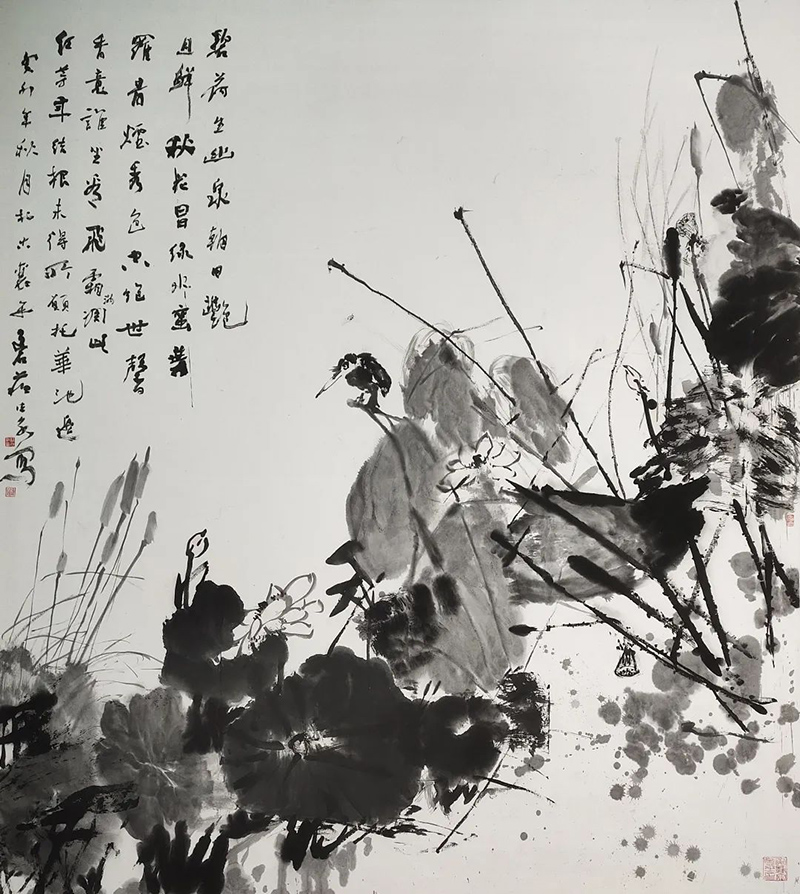 碧荷生幽泉朝日艷
且鮮秋花冒綠水密葉
羅青煙秀色空絕世馨
香誰坐看飛霜滿凋此
紅芳年結根未得所願托華池邊
癸卯年秋月於寫